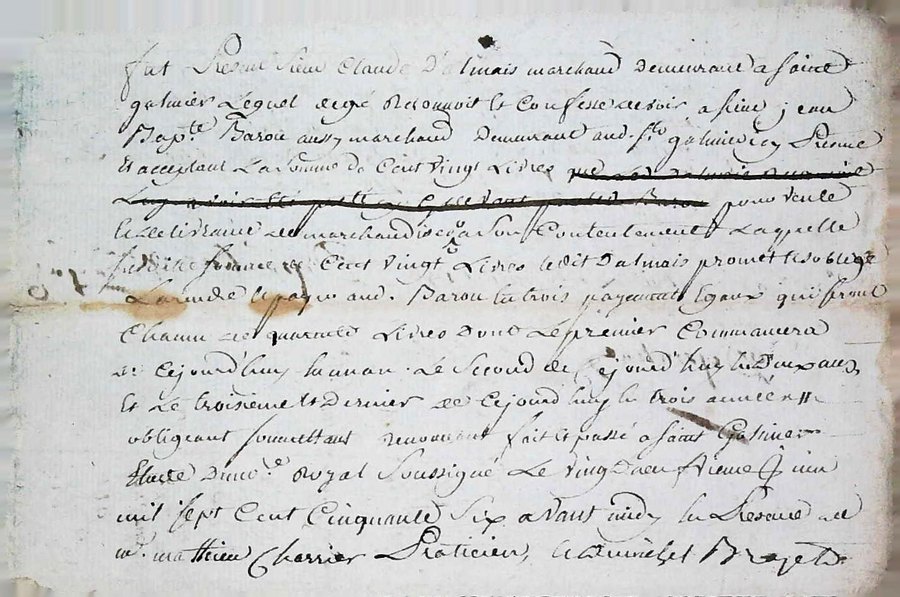 fut Présent Sieur Claude Dalmais marchand Demeurant a Saint
galmier Lequel de gré Reconnoit et Confesse devoir a sieur jean
Bapte Barou aussy marchand Demeurant aud. St galmier icy Présent
Et acceptant La somme de Cent vingt Livres pour vente
et delivrance de marchandises a son Contentement Laquelle
susditte somme de Cent vingt Livres ledit Dalmais promet et s'oblige
La rendre et payer aud. Barou en trois payements Egaux qui seront
Chacun de quarante Livres Dont Le premier Commancera
de Cejourd'huy en un an. Le Second de Cejourd'huy en Deux ans,
Et Le troisieme et Dernier de Cejourd'huy en trois années
obligeant soumettant renonceant fait et passé a saint Galmier
Etude Du nre Royal Soussigné Le vingt neuvieme juin
mil sept Cent Cinquante Six avant midy en Présence de
me. mathieu Charrier Praticien,